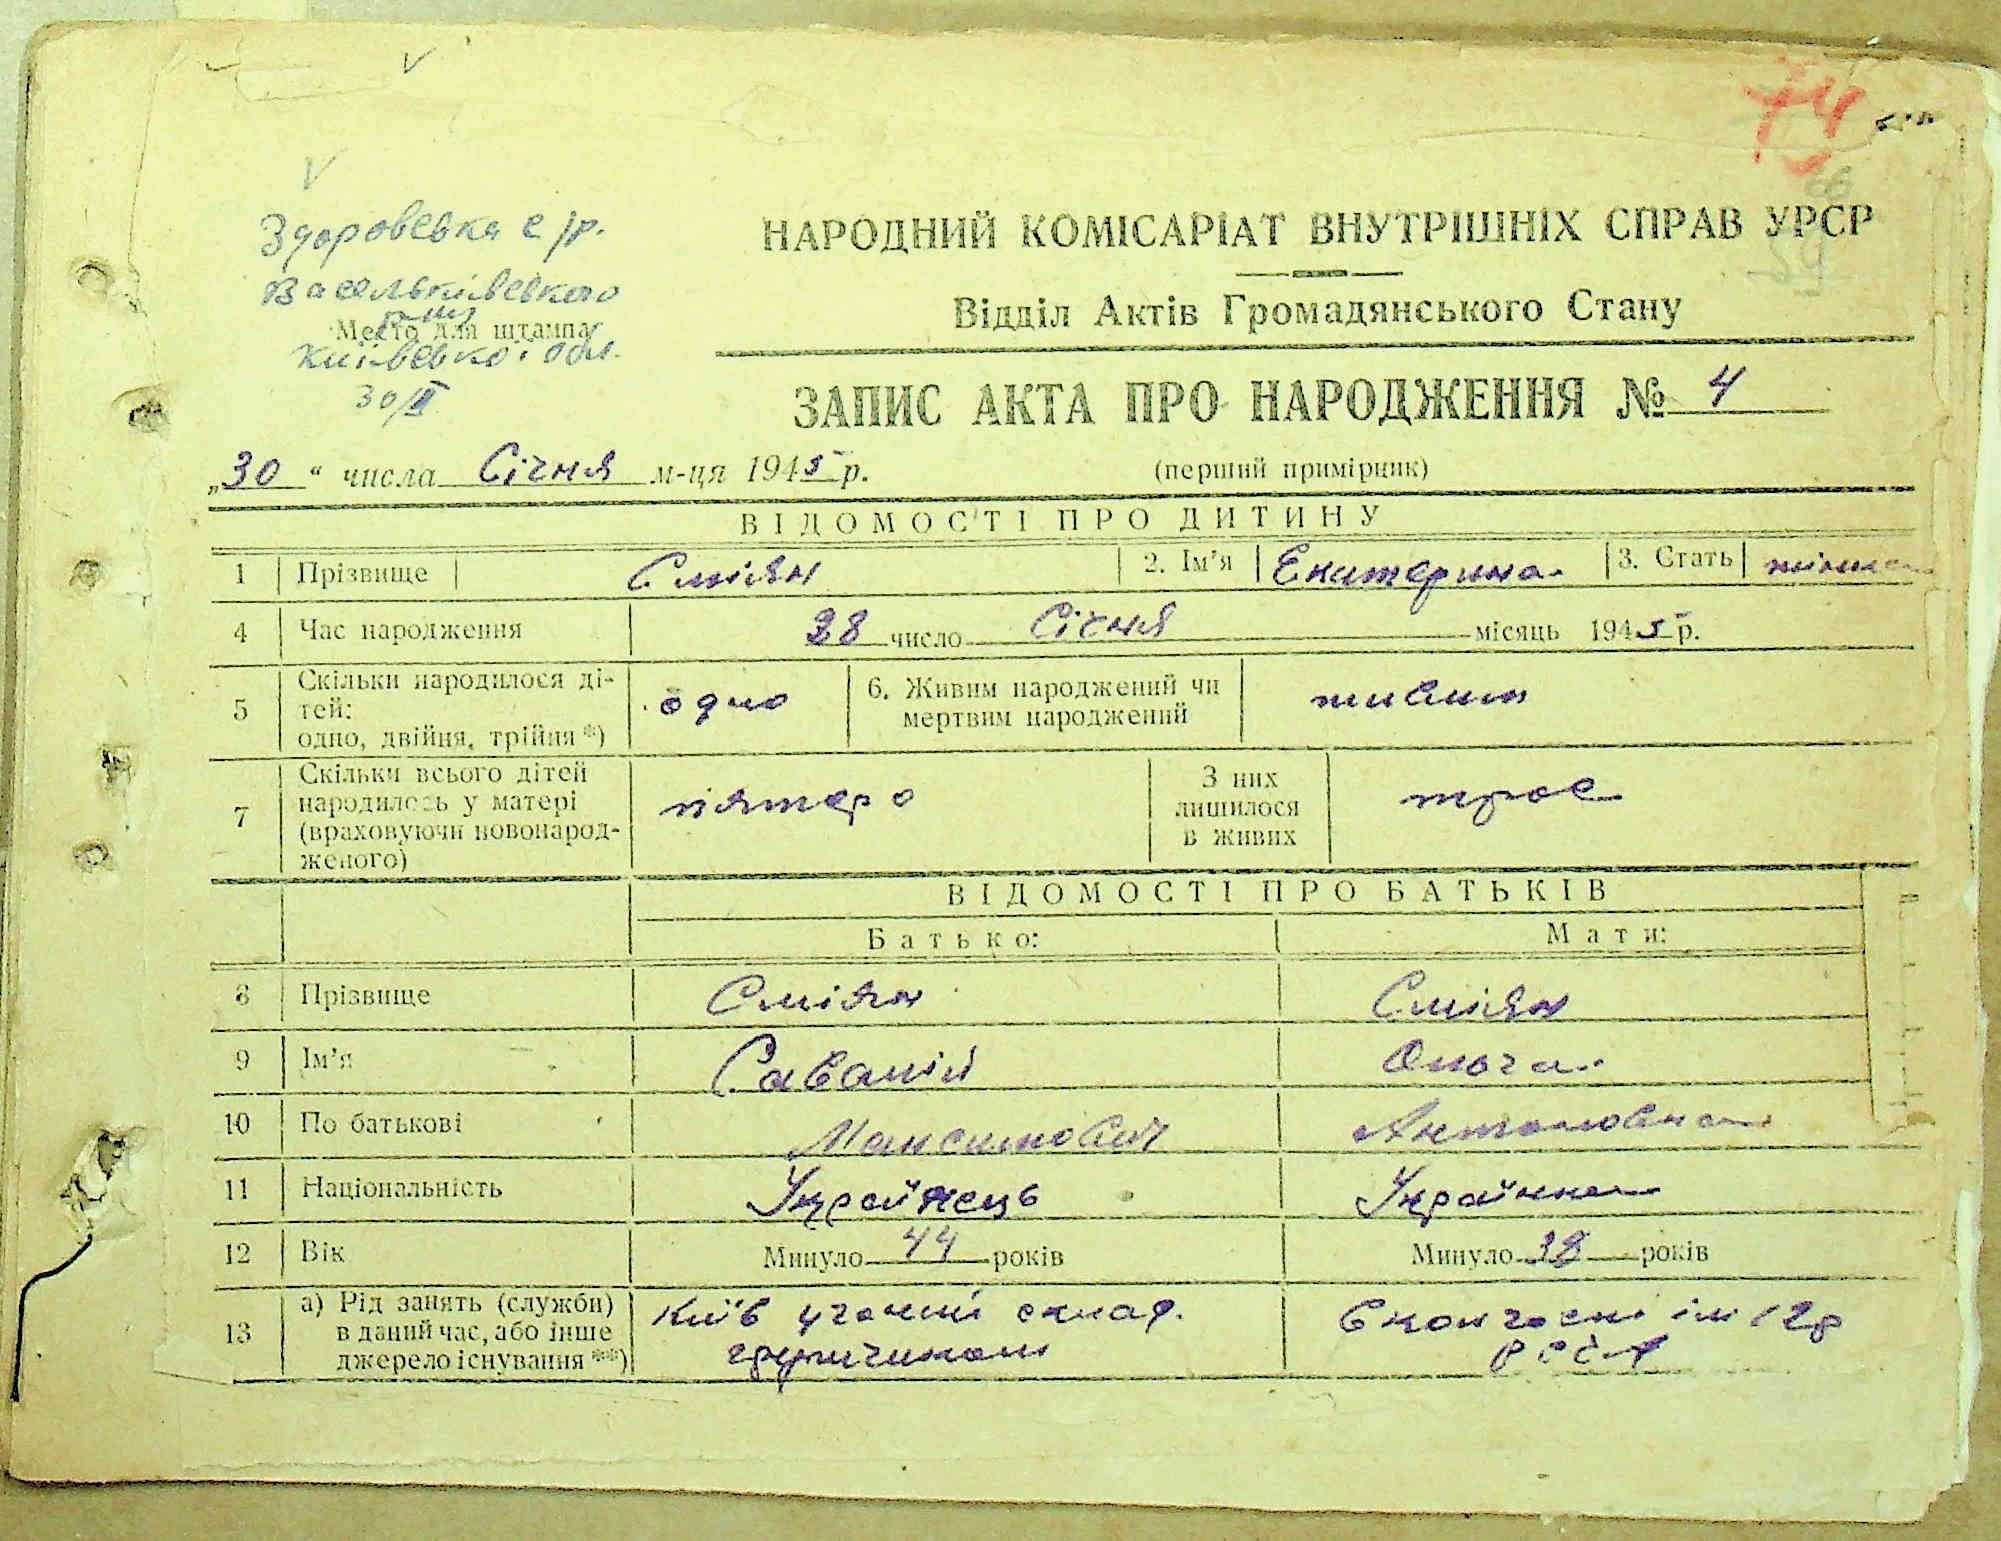 74
Здоровська с/р.
Васильківського
р-ну
Місто для штампа
Київської обл.
30/II
НАРОДНИЙ КОМІСАРІАТ ВНУТРІШНІХ СПРАВ УРСР
Відділ Актів Громадянського Стану
ЗАПИС АКТА ПРО НАРОДЖЕННЯ № 4
„30“ числа Січня м-ця 1945 р. (перший примірник)
ВІДОМОСТІ ПРО ДИТИНУ
1 Прізвище Сміян 2. Ім'я Екатерина. 3. Стать жіноча
4 Час народження 28 число Січня місяць 1945 р.
5 Скільки народилося ді-
тей:
одно, двійня, трійня *) одно 6. Живим народжений чи
мертвим народжений живим
7 Скільки всього дітей
народилось у матері
(враховуючи новонарод-
женого) пятеро З них
лишилося
в живих троє
ВІДОМОСТІ ПРО БАТЬКІВ
Батько: Мати:
8 Прізвище Сміян Сміян
9 Ім'я Саватій Ольга
10 По батькові Максимович Антоновна
11 Національність Українець Українка
12 Вік Минуло 44 років Минуло 38 років
13 а) Рід занять (служби)
в даний час, або інше
джерело існування **) Київ склад.
грузчиком
в колгоспі ім 12р
РСЧА